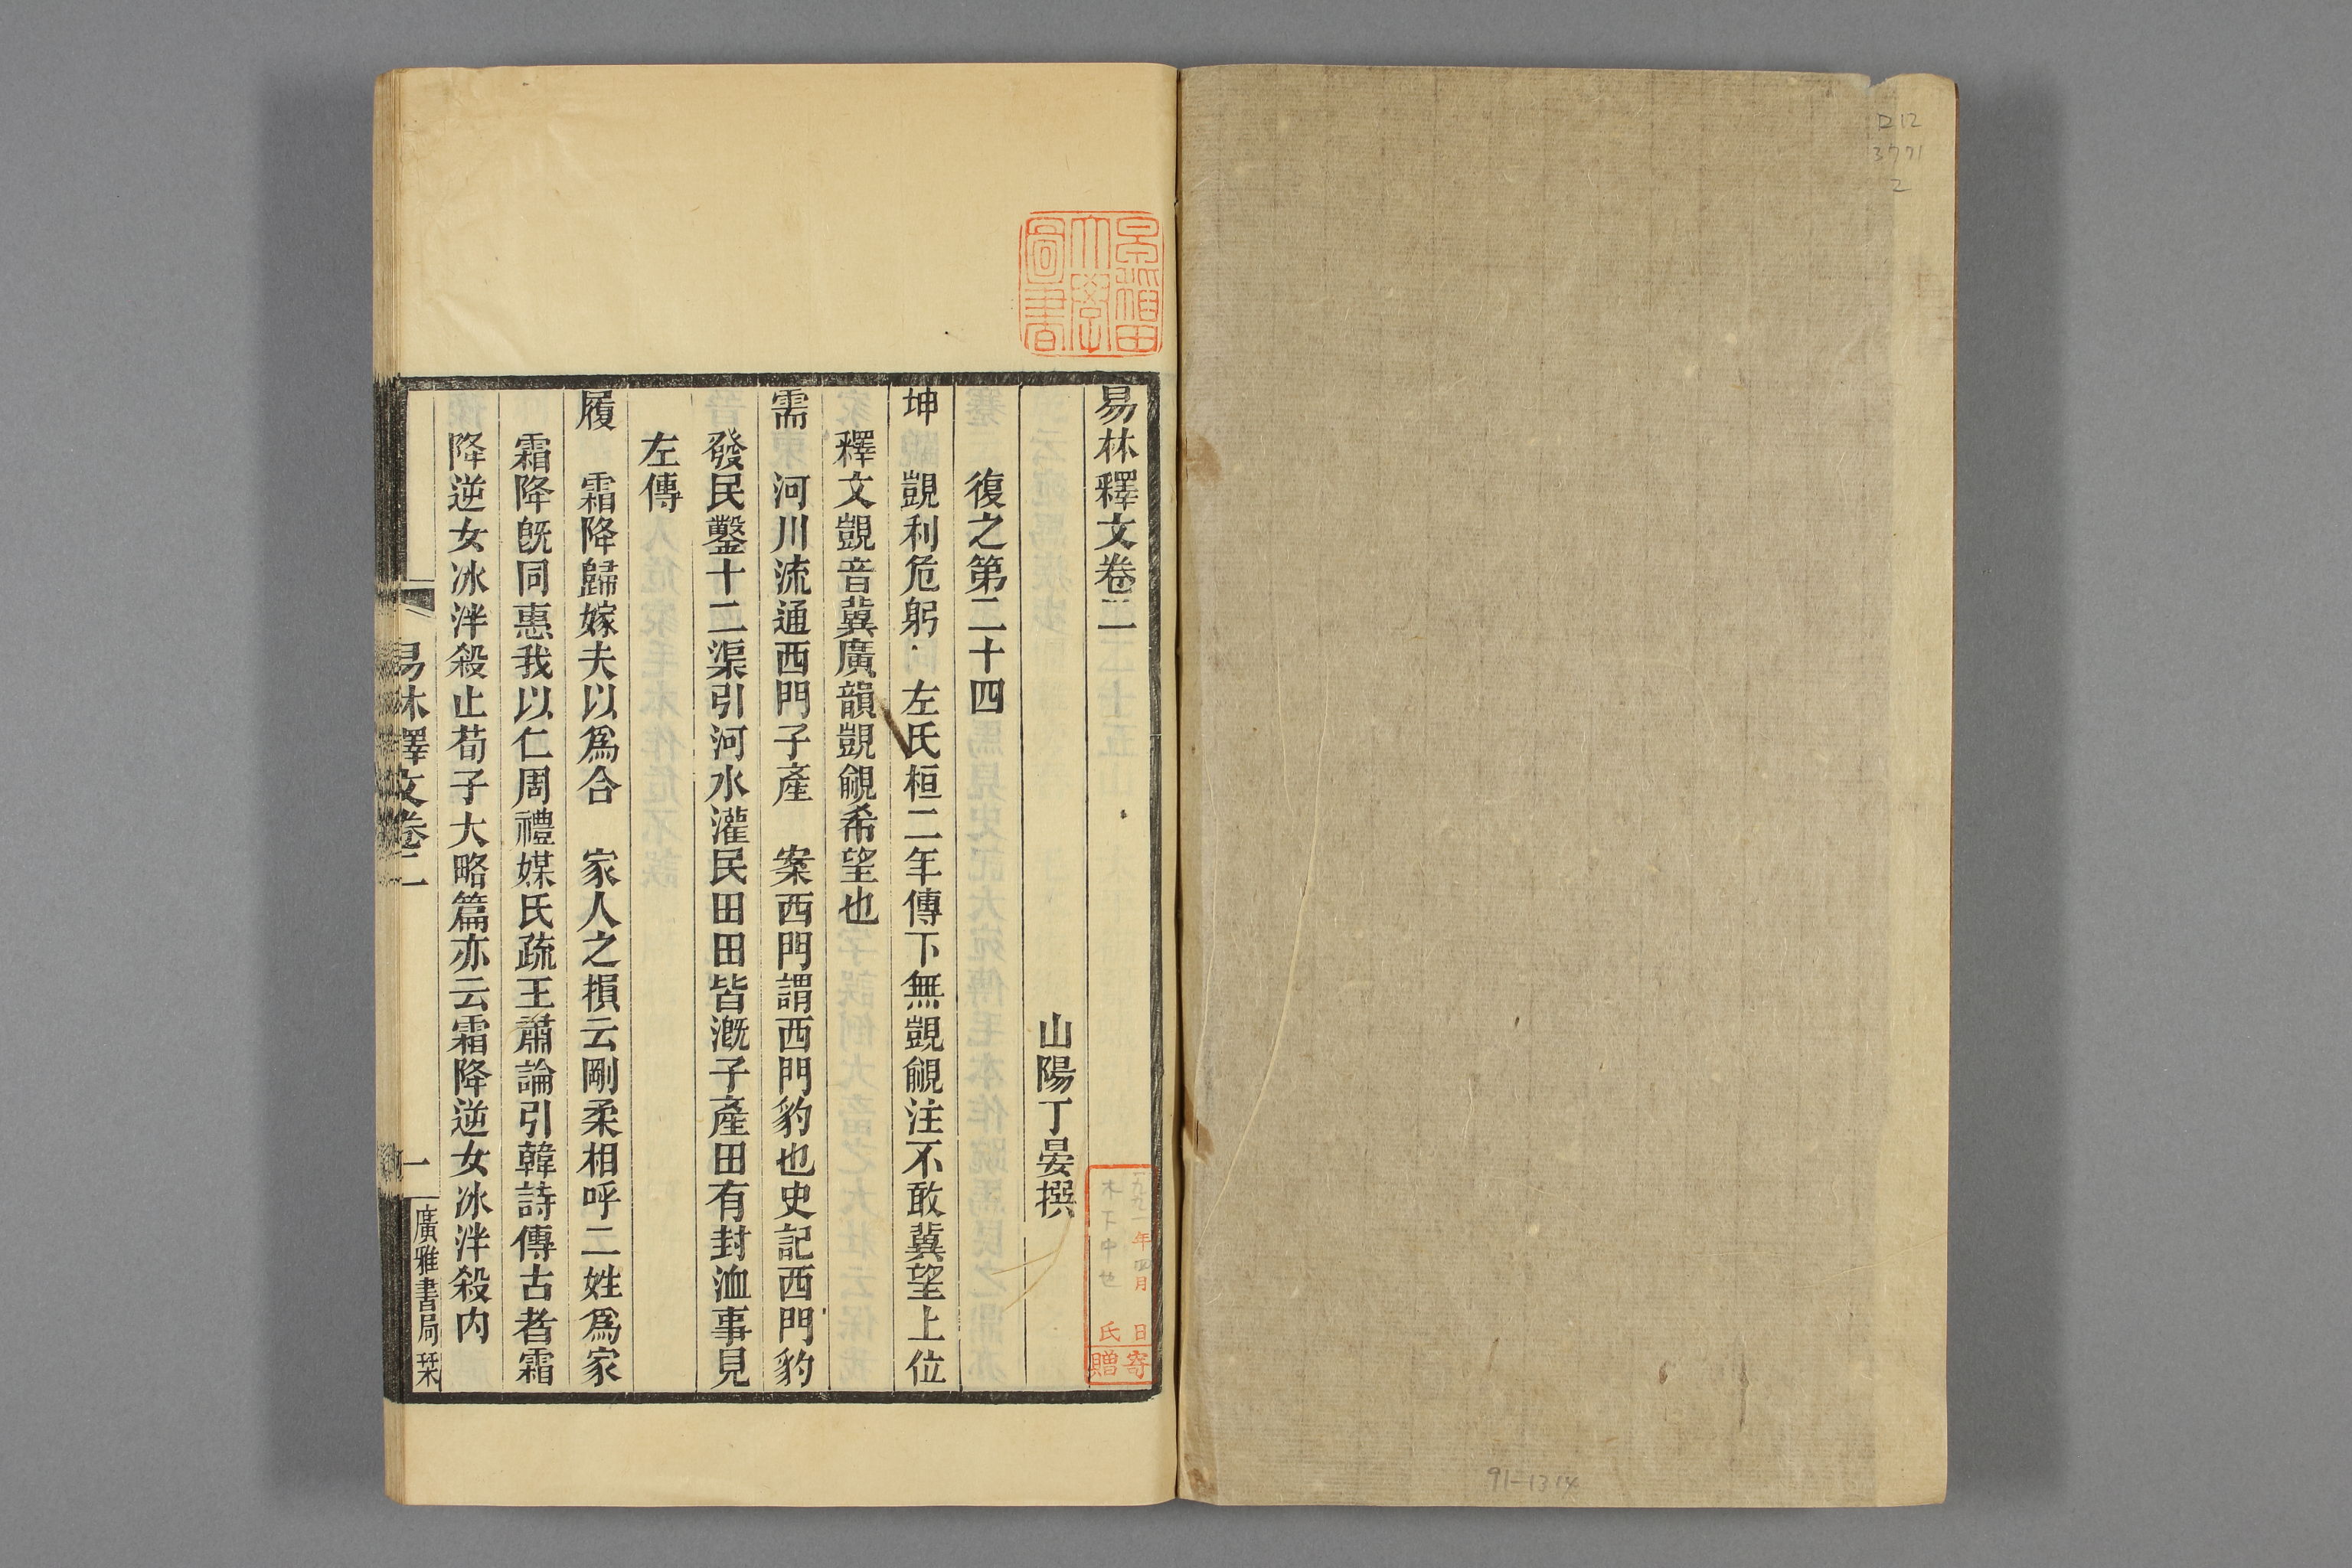 D12
3771
2
91-1314
早稲田
大學
圖書
易林釋文卷二
山陽丁晏撰
一九九一年四月日
木下中也氏
寄贈
復之第二十四
坤 覬利危躬 左氏桓二年傳下無覬覦注不敢冀望上位
釋文覬音冀廣韻覬覦希望也
需 河川流通西門子產 案西門謂西門豹也史記西門豹
發民鑿十二渠引河水灌民田田皆漑子產田有封洫事見
左傳
履 霜降歸嫁夫以爲合 家人之損云剛柔相呼二姓爲家
霜降旣同惠我以仁周禮媒氏疏王肅論引韓詩傳古者霜
降逆女冰泮殺止荀子大略篇亦云霜降逆女冰泮殺内
易林釋文卷二
一
廣雅書局栞